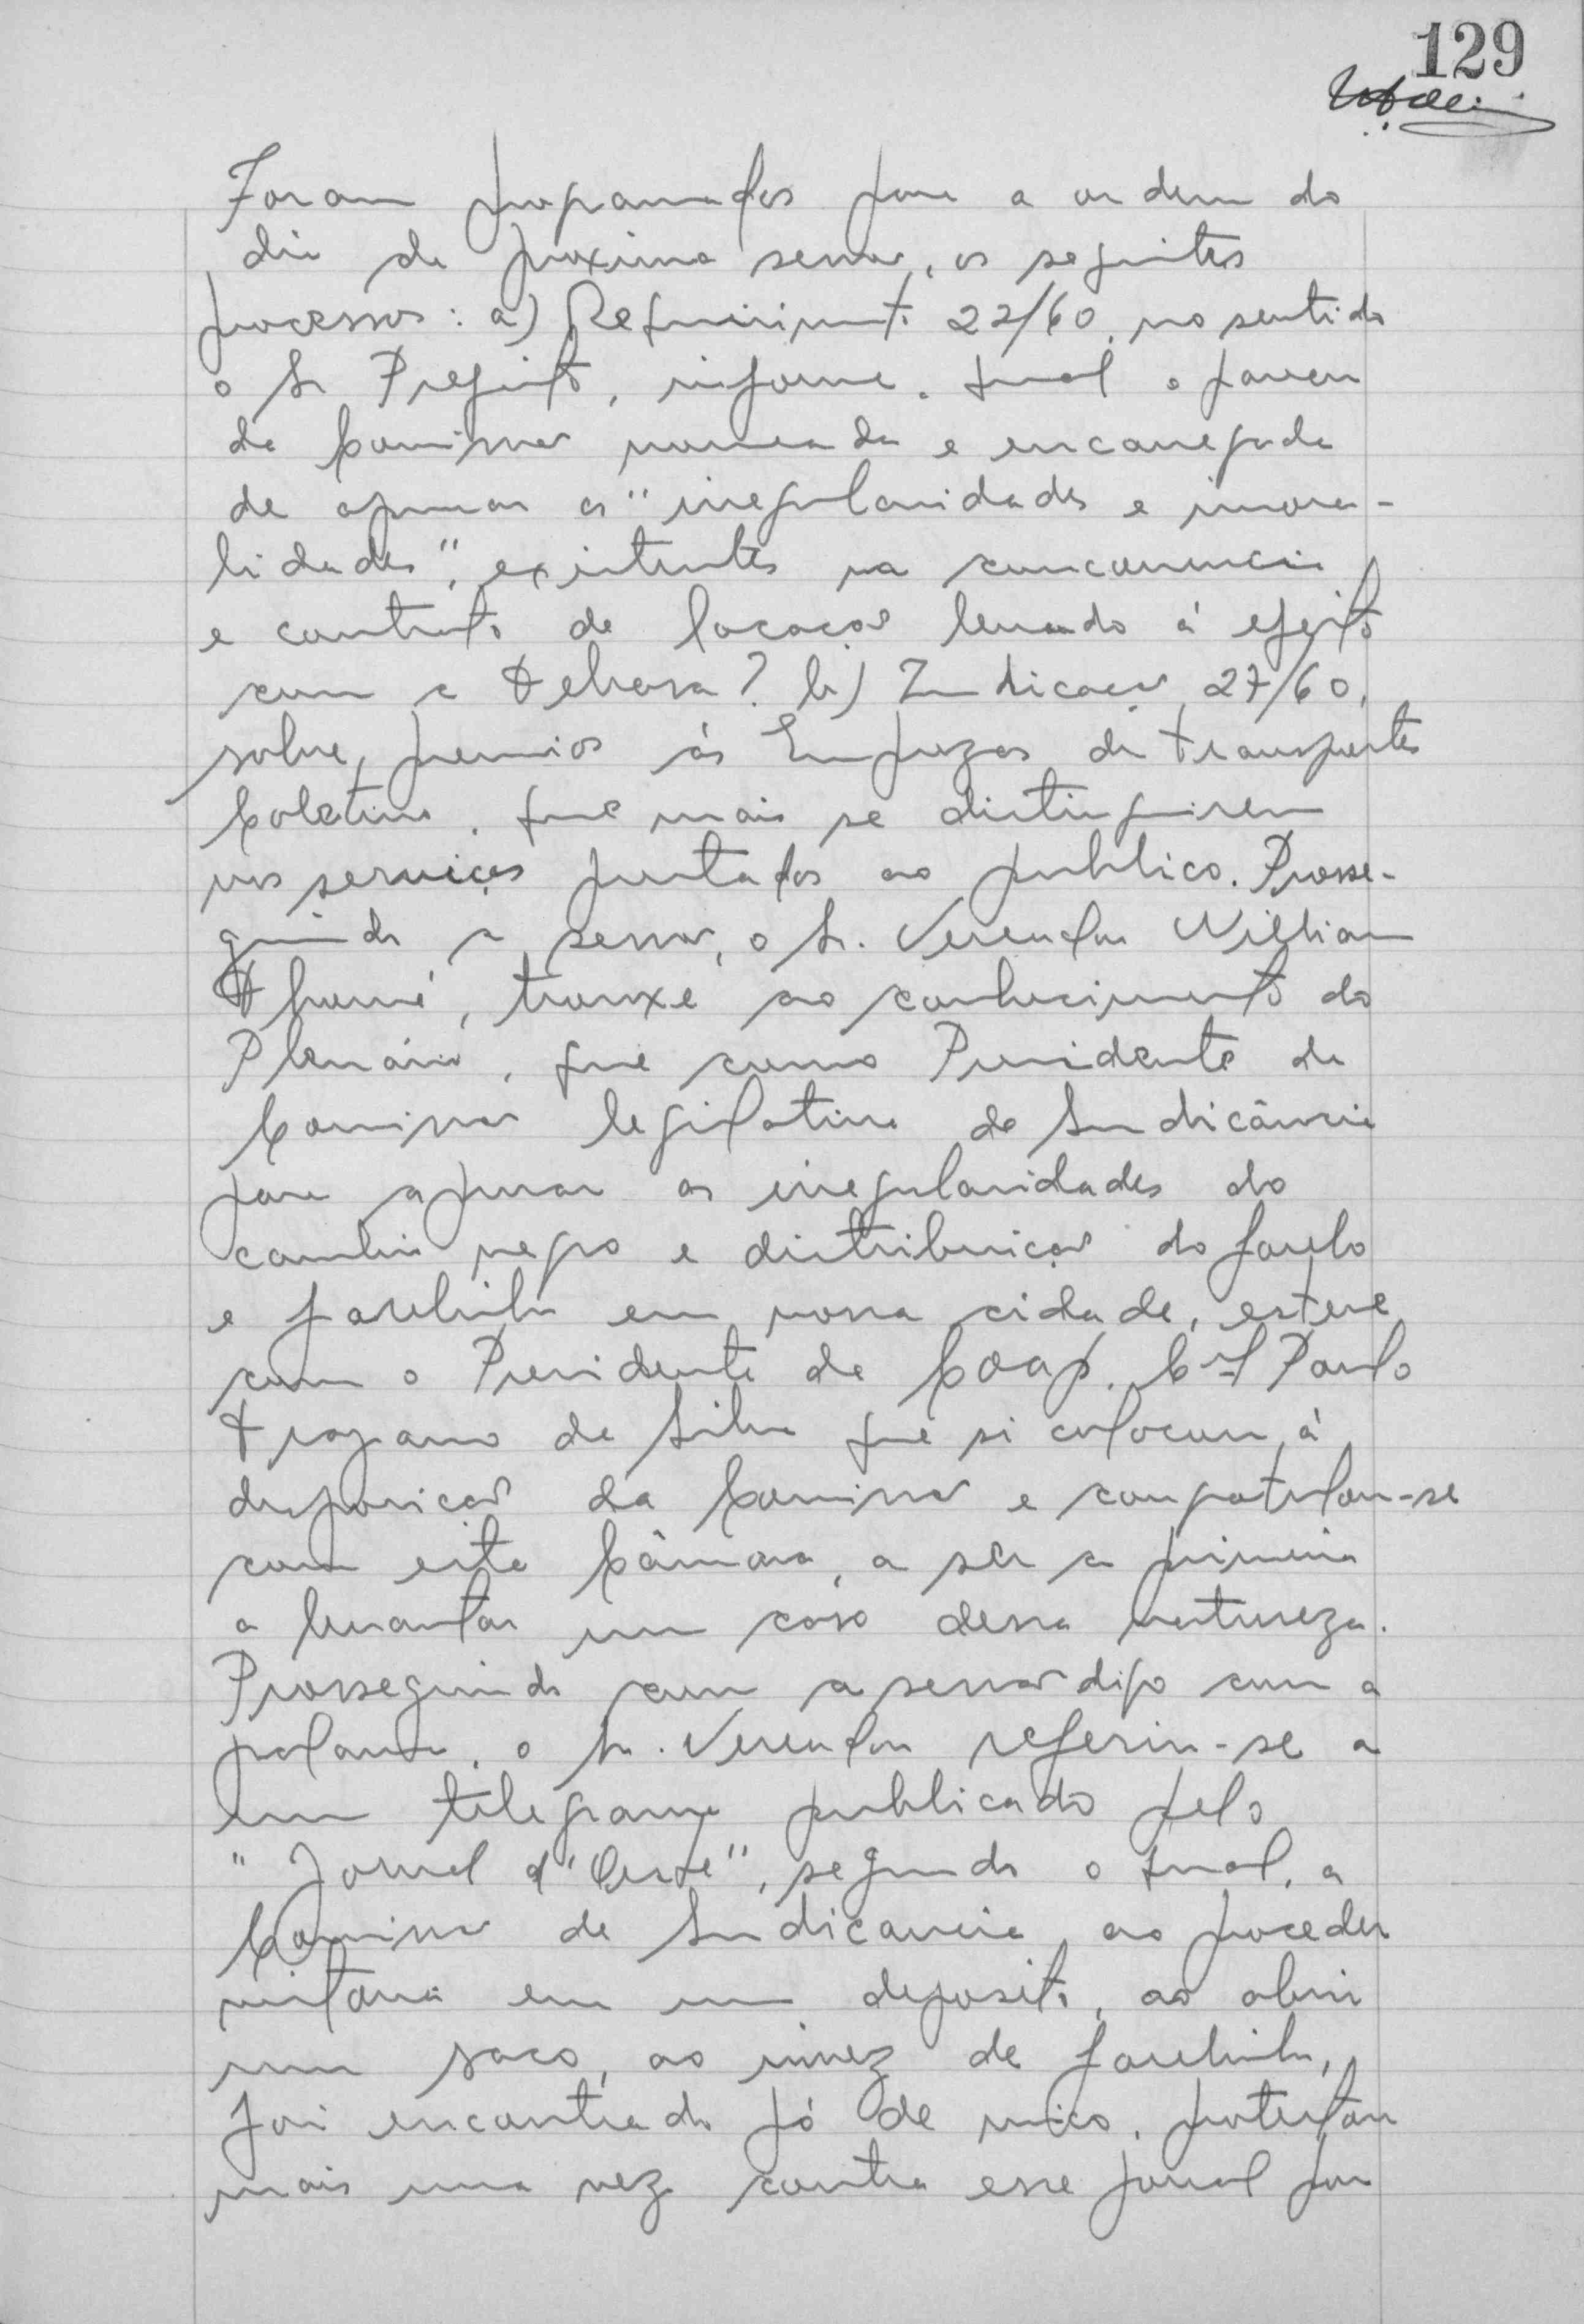 129
Foram programados para a ordem do
dia da proxima sessão, os seguintes
processos: a) Requerimento 22/60, no sentido
o Sr Prefeito, informe, qual o parecer
da Comissão nomeada e encarregada
de apurar as "irregularidades e imora-
lidades", existentes na concorrencia
e contrato de locação levado á efeito
com a Tebasa? b) Indicação 27/60,
sobre, premios ás Emprezas de transportes
Coletivos, que mais se distinguirem
nos serviços prestados ao publico. Prosse-
guindo a sessão, o Sr. Vereador Willian
Thomé, trouxe ao conhecimento do
Plenário, que como Presidente da
Comissão legislativa de Sindicância
para apurar as irregularidades do
cambio negro e distribuição do farelo
e farelinho em nossa cidade, esteve
com o Presidente da Coap, Cel Paulo
Trajano da Silva que si colocou á
disposição da Comissão e congratulou-se
com esta Câmara, a ser a primeira
a levantar um caso dessa natureza.
Prosseguindo com a sessão digo com a
palavra, o Sr. Vereador referiu-se a
um telegrama publicado pelo
"Jornal d'Oeste", segundo o qual, a
Comissão de Sindicancia ao proceder
vistoria em um deposito, ao abrir
um saco, ao invez de farelinho,
foi encontrado pó de mico, protestou
mais uma vez contra esse jornal por